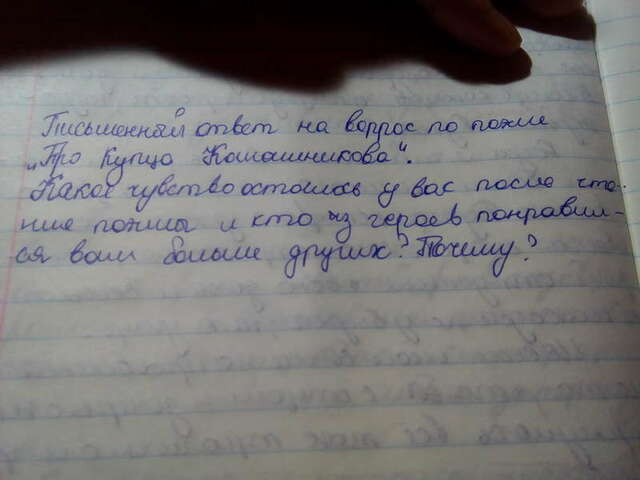 Письменный ответ на вопрос по поэме
„Про купца Калашникова".
Какое чувство осталось у вас после чте-
ние поэмы и кто из героев понравил-
ся вам больше других? Почему?